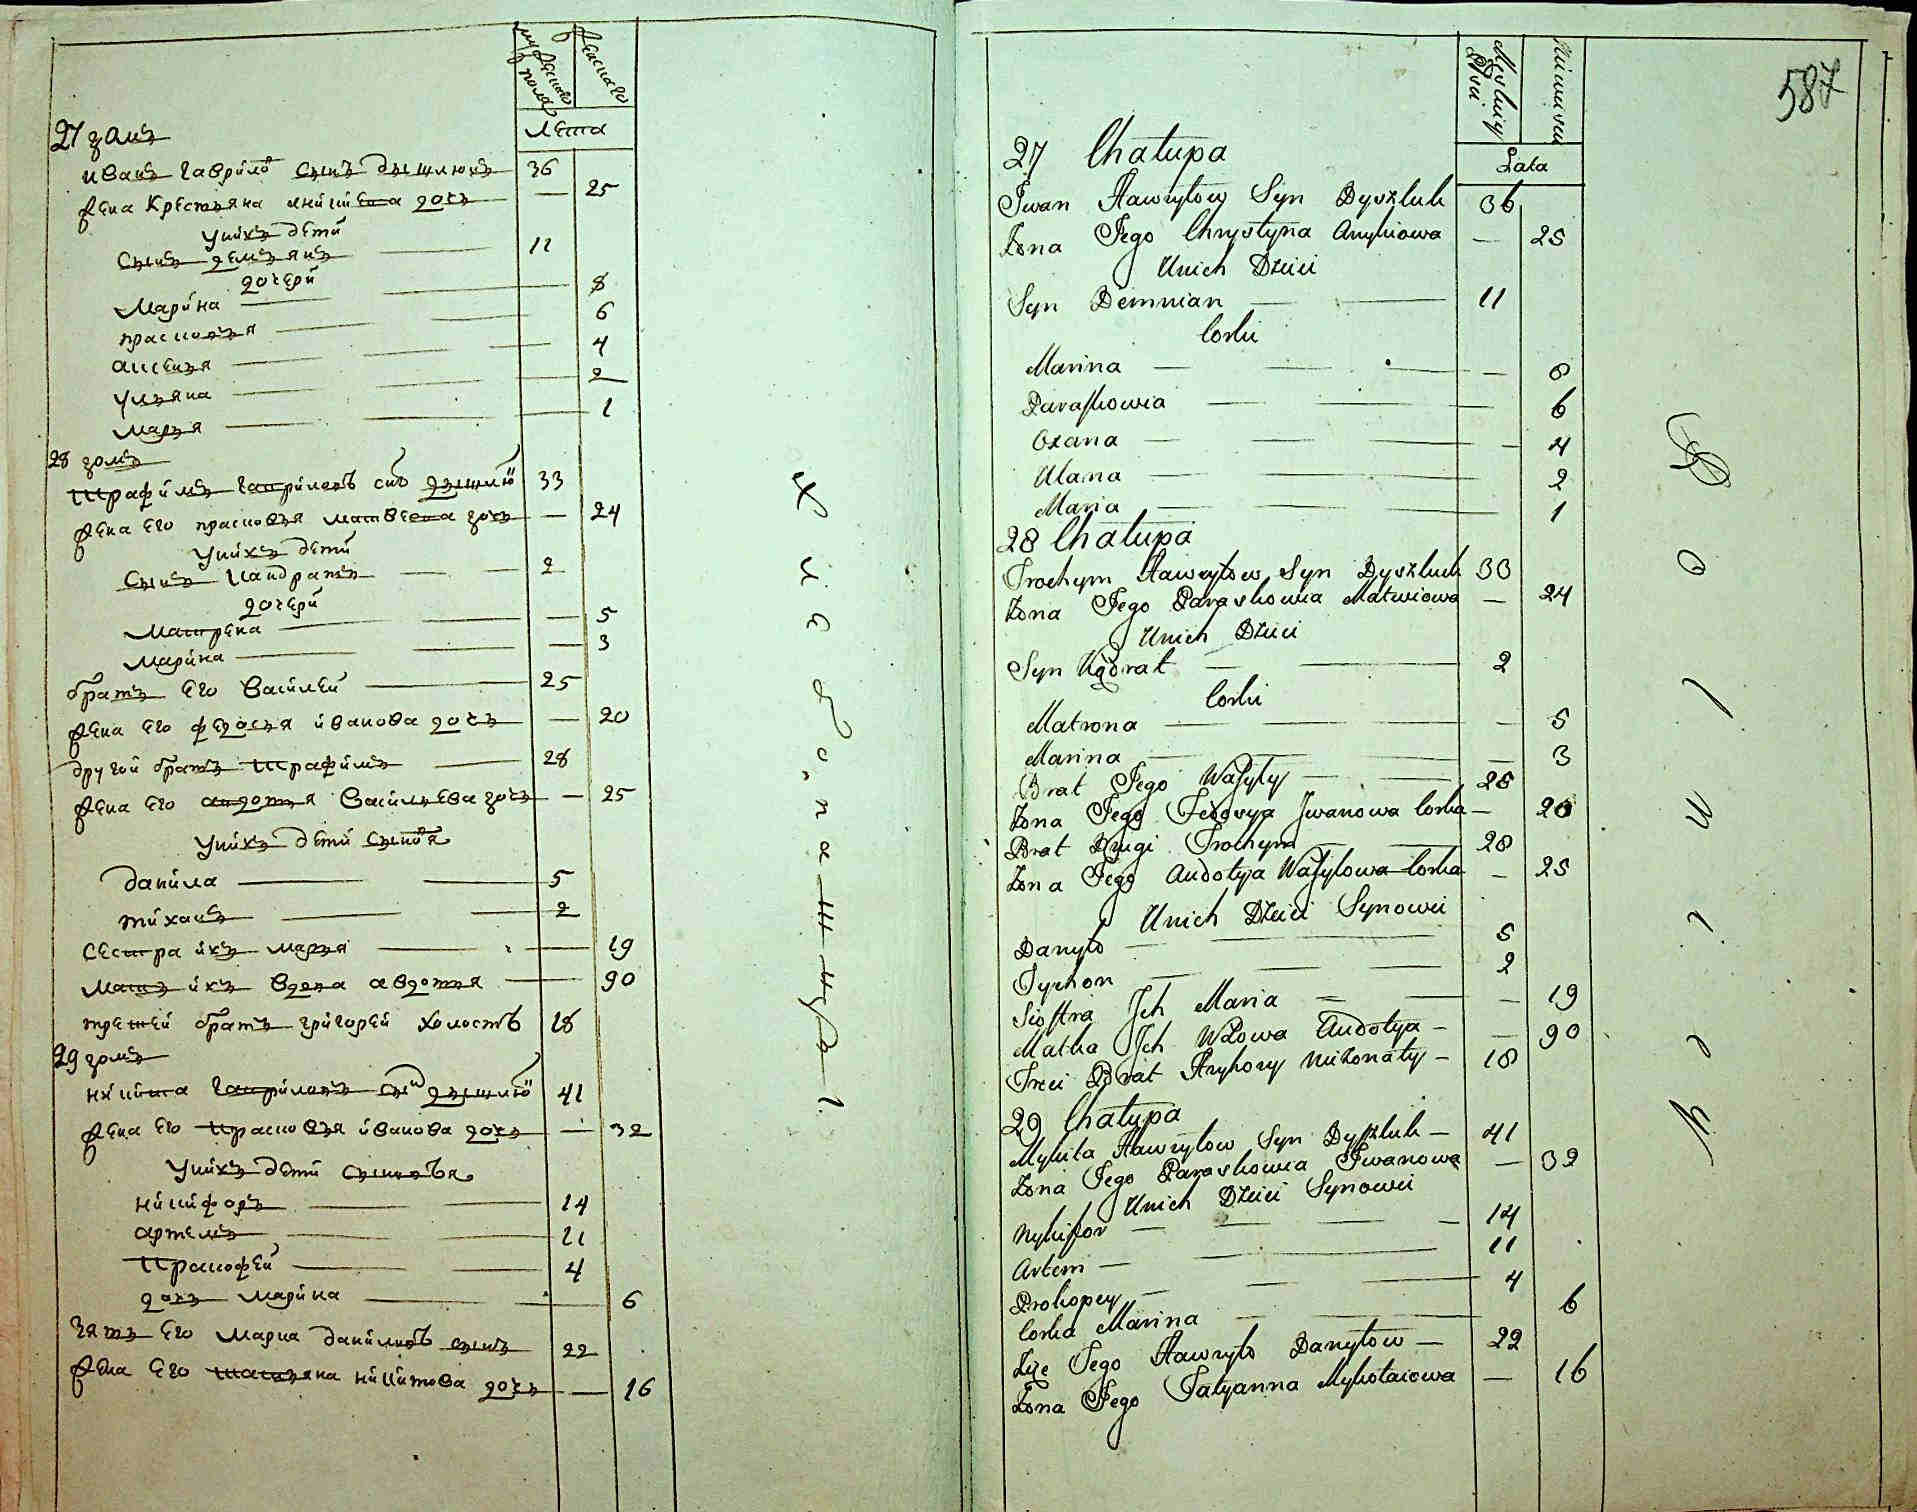 мужеска пола
женска
лета
27 домъ
иванъ гаврилов сынъ дышлюкъ 36
жена Крестьяна аникиева дочь — 25
у них детй
сынъ демьянъ 11
дочери
марина 8
прасковья 6
аксенья 4
ульяна 2
марья 1
28 домъ
трафимъ гавриловъ снъ дышлю 33
жена его прасковья матвеева дочь — 24
у нихъ детй
сынъ кандратъ 2
дочери
матрена 5
марина 3
братъ его василей 25
жена его федосья иванова дочь — 20
другой братъ трафимъ 28
жена его авдотья васильева дочь — 25
у нихъ детй сыновя
данила 5
тиханъ 2
сестра ихъ марья 19
мать ихъ вдова авдотья 90
третей братъ григорей холостъ 18
29 домъ
никита гавриловъ сн дышлю 41
жена его прасковья иванова дочь — 32
у нихъ детй сыновья
никифоръ 14
артемъ 11
пракофей 4
дочь марина 6
зять его марка даниловъ сынъ 22
жена его татьяна никитова дочь — 16
587
Męskiey Płci
Lata
27 Chałupa
Iwan Hawryłow Syn Dyszluk 36
Żona Jego Chrystyna Anykiowa — 25
Unich Dzieci
Syn Demnian 11
Corki
Marina 8
Paraskowia 6
Oxana 4
Ulana 2
Maria 1
28 Chałupa
Trochym Hawryłow Syn Dyszluk 33
Żona Jego Paraskowia Matwiowa — 24
Unich Dzieci
Syn Kądrat 2
Corki
Matrona 5
Marina 3
Brat Jego Wasyly 25
Żona Jego Fedosya Jwanowa Corka — 20
Brat Drugi Trochym 28
Żona Jego Audotya Wasylowa Corka — 25
Unich Dzieci Synowei
Danyło 5
Tychon 2
Siostra Jch Maria 19
Matka Jch Wdowa Audotya 90
Treci Brat Hryhory nieżonaty 18
29 Chałupa
Mykita Hawryłow Syn Dyszluk 41
Żona Jego Paraskowia Iwanowa — 32
Unich Dzieci Synowei
Nykifor 14
Artem 11
Prokopey 4
Corka Marina 6
Zięc Jego Hawryło Danyłow 22
Żona Jego Tatyanna Mykołaiowa — 16